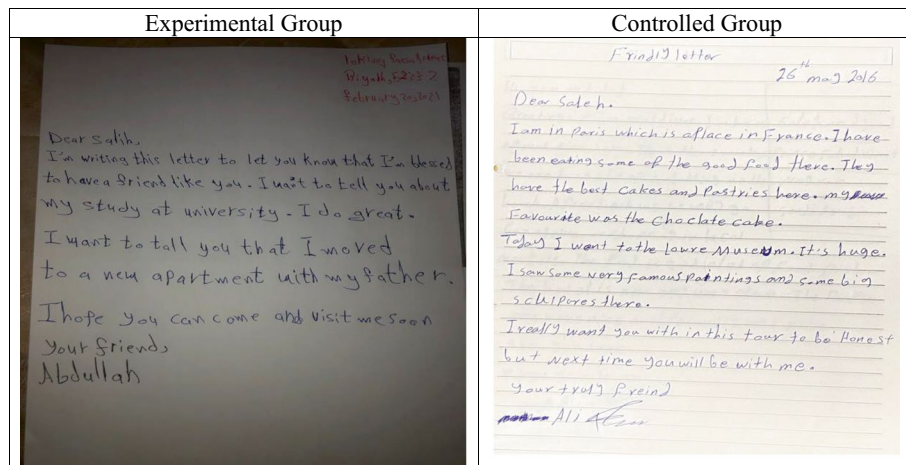 Experimental Group
Controlled Group
Riyadh, 52272
February
Dear Salih,
I'm writing this letter to let you know that I'm blessed
to have a friend like you. I wait to tell you about
my study at university. I do great.
I want to tall you that I moved
to a new apartment with my father.
I hope you can come and visit me soon
Your friend,
Abdullah
Frindly letter
26th may 2016
Dear Saleh.
I am in Paris which is aplace in France. I have
been eating some of the good food there. They
have the best cakes and Pastries here. my
Favourite was the Choclate cake.
Today I went to the Lowre Museum. It's huge.
I saw some very famous paintings and some big
sculpores there.
I really want you with in this tour to be Honest
but Next time you will be with me.
your truly freind
Ali